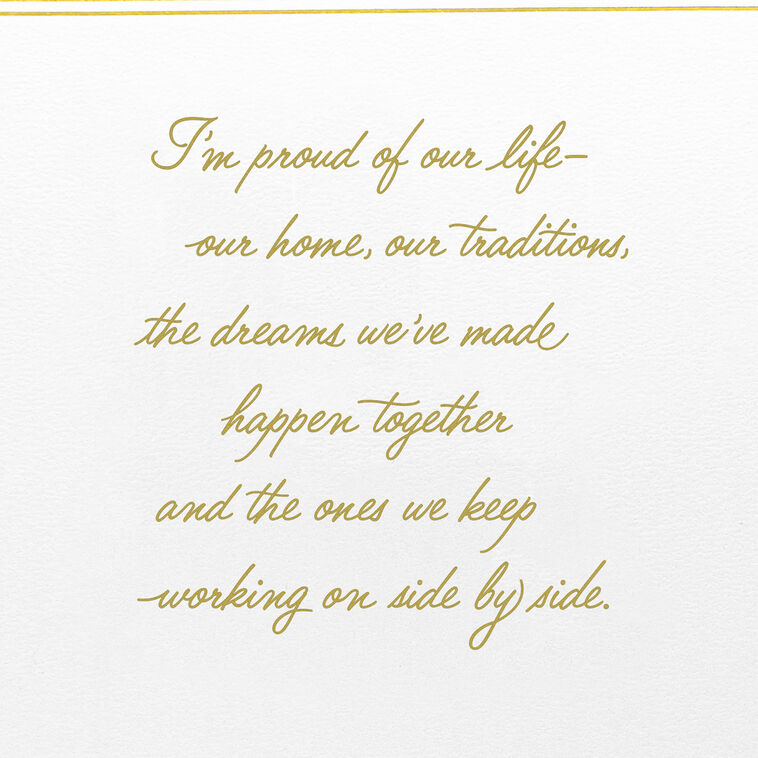 I'm proud of our life–
our home, our traditions,
the dreams we've made
happen together
and the ones we keep
working on side by side.